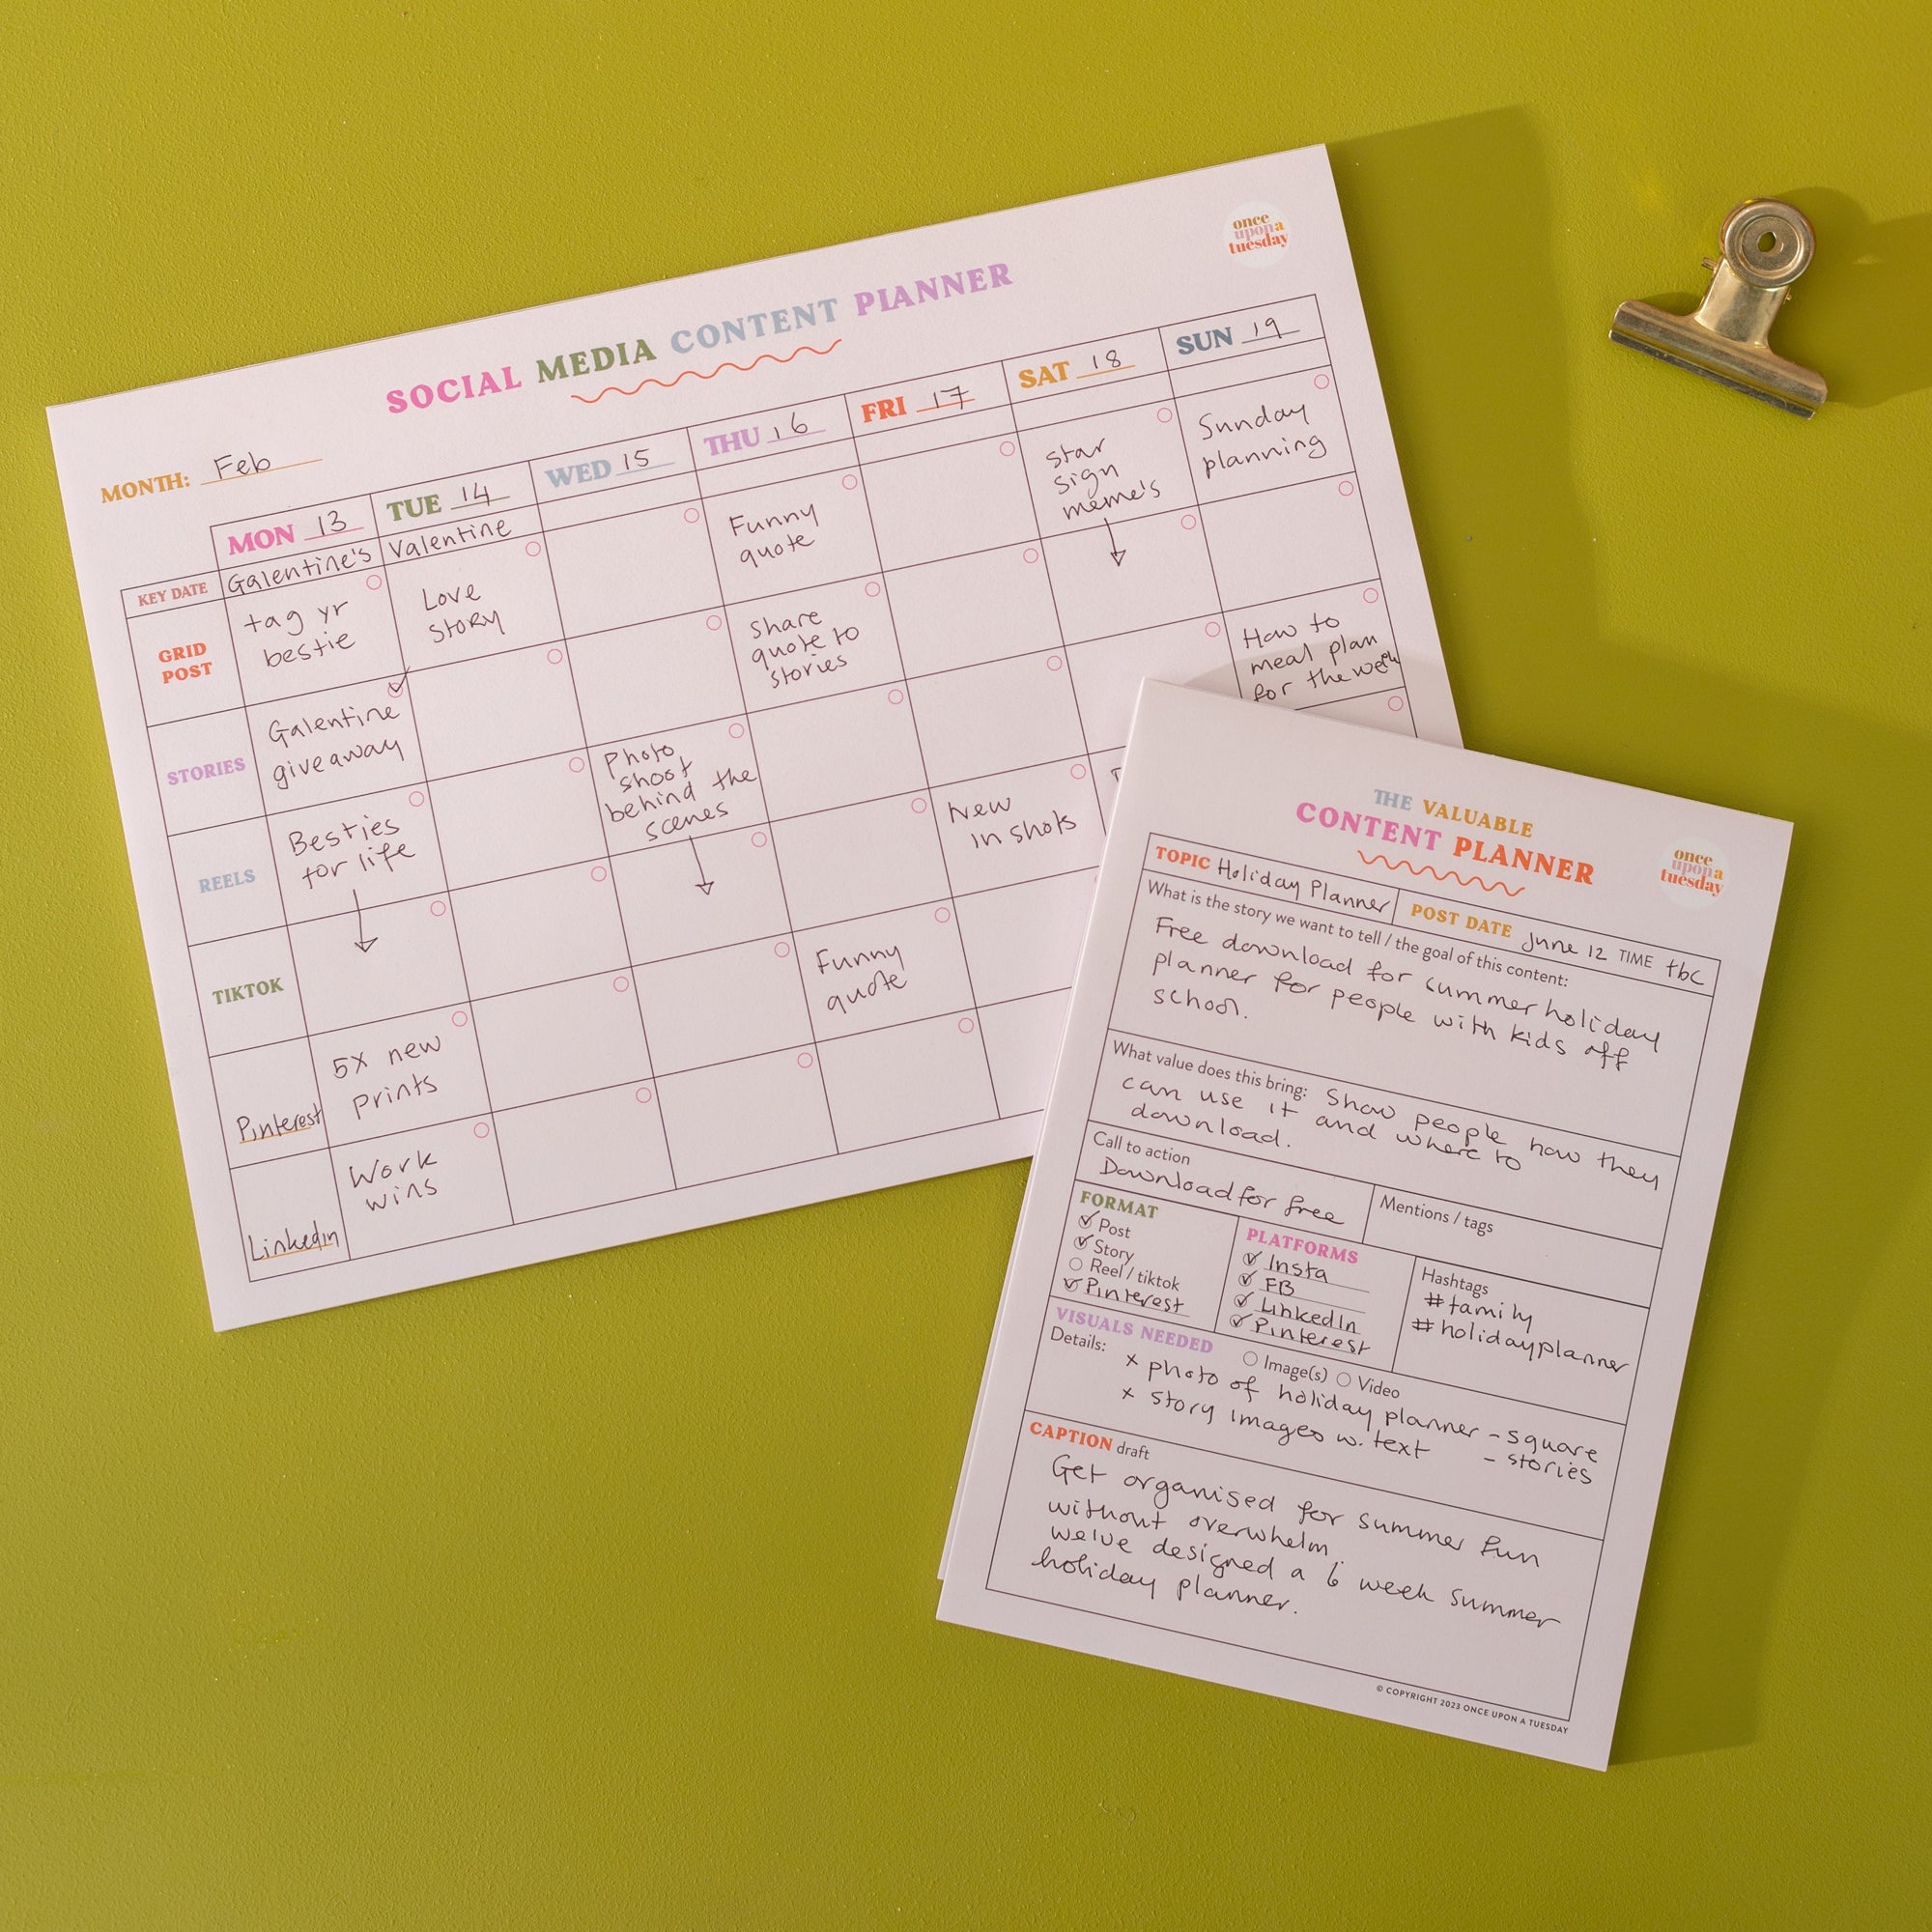 once
upon a
tuesday
SOCIAL MEDIA CONTENT PLANNER
MONTH: Feb
MON 13 TUE 14 WED 15 THU 16 FRI 17 SAT 18 SUN 19
KEY DATE Galentine's Valentine
GRID
POST
tag yr
bestie
Love
story
Funny
quote
Star
sign
meme's
Sunday
planning
STORIES
Galentine
giveaway
Share
quote to
stories
REELS
Besties
for life
Photo
shoot
behind the
scenes
How to
meal plan
for the week
TIKTOK
New
in shots
Pinterest
5x new
prints
Funny
quote
LinkedIn
Work
wins
THE VALUABLE
CONTENT PLANNER
once
upon a
tuesday
TOPIC Holiday Planner POST DATE June 12 TIME tbc
What is the story we want to tell / the goal of this content:
Free download for summer holiday
planner for people with kids off
school.
What value does this bring: Show people how they
can use it and where to
download.
Call to action
Download for free
Mentions / tags
FORMAT
Post
Story
Reel / tiktok
Pinterest
PLATFORMS
Insta
FB
LinkedIn
Pinterest
Hashtags
#family
#holidayplanner
VISUALS NEEDED Image(s) Video
Details:
x photo of holiday planner - square
- stories
x story images w. text
CAPTION draft
Get organised for summer fun
without overwhelm.
we've designed a 6 week summer
holiday planner.
© COPYRIGHT 2023 ONCE UPON A TUESDAY